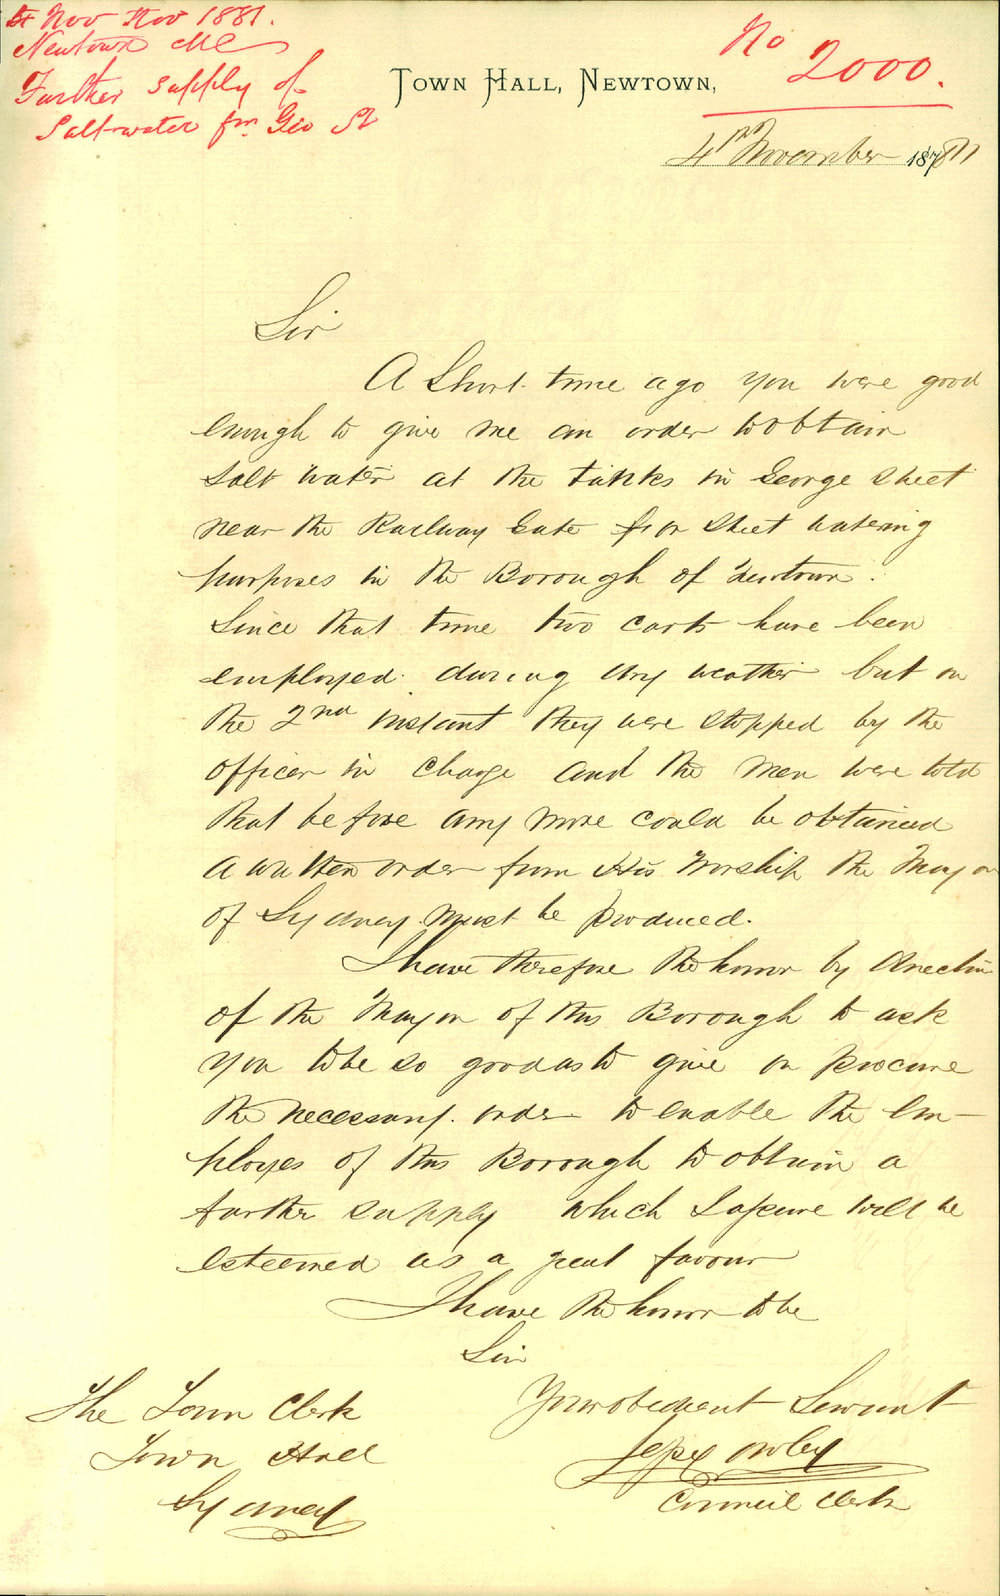 Nov 1881.
Newtown MC
Further supply of
Saltwater fm Geo St
No 2000.
TOWN HALL, NEWTOWN,
4th November 1881
Sir
A Short time ago you were good
enough to give me an order to obtain
Salt water at the tanks in George Street
near the Railway Gate for Street watering
purposes in the Borough of Newtown.
Since that time two carts have been
employed during dry weather but on
the 2nd instant they were stopped by the
officer in charge and the men were told
that before any more could be obtained
a written order from His Worship the Mayor
of Sydney must be produced.
I have therefore the honor by direction
of the Mayor of this Borough to ask
you to be so good as to give or procure
the necessary order to enable the em-
ployes of this Borough to obtain a
further supply which I assure will be
esteemed as a great favour
I have the honor to be
Sir
Your obedient Servant
Council Clerk
The Town Clerk
Town Hall
Sydney